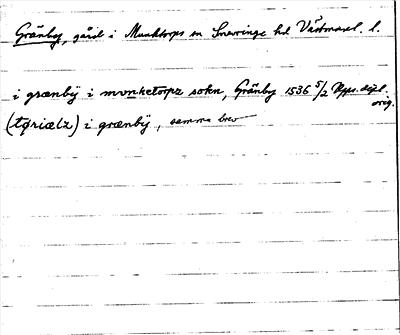 Gränby, gård i Munktorps sn Snevringe hd Västmanl. l.
i grænbÿ i mvnketorpz sokn, Gränby 1536 5/2 Upps. dipl. orig.
(tøriælz) i grænbÿ, samma brev